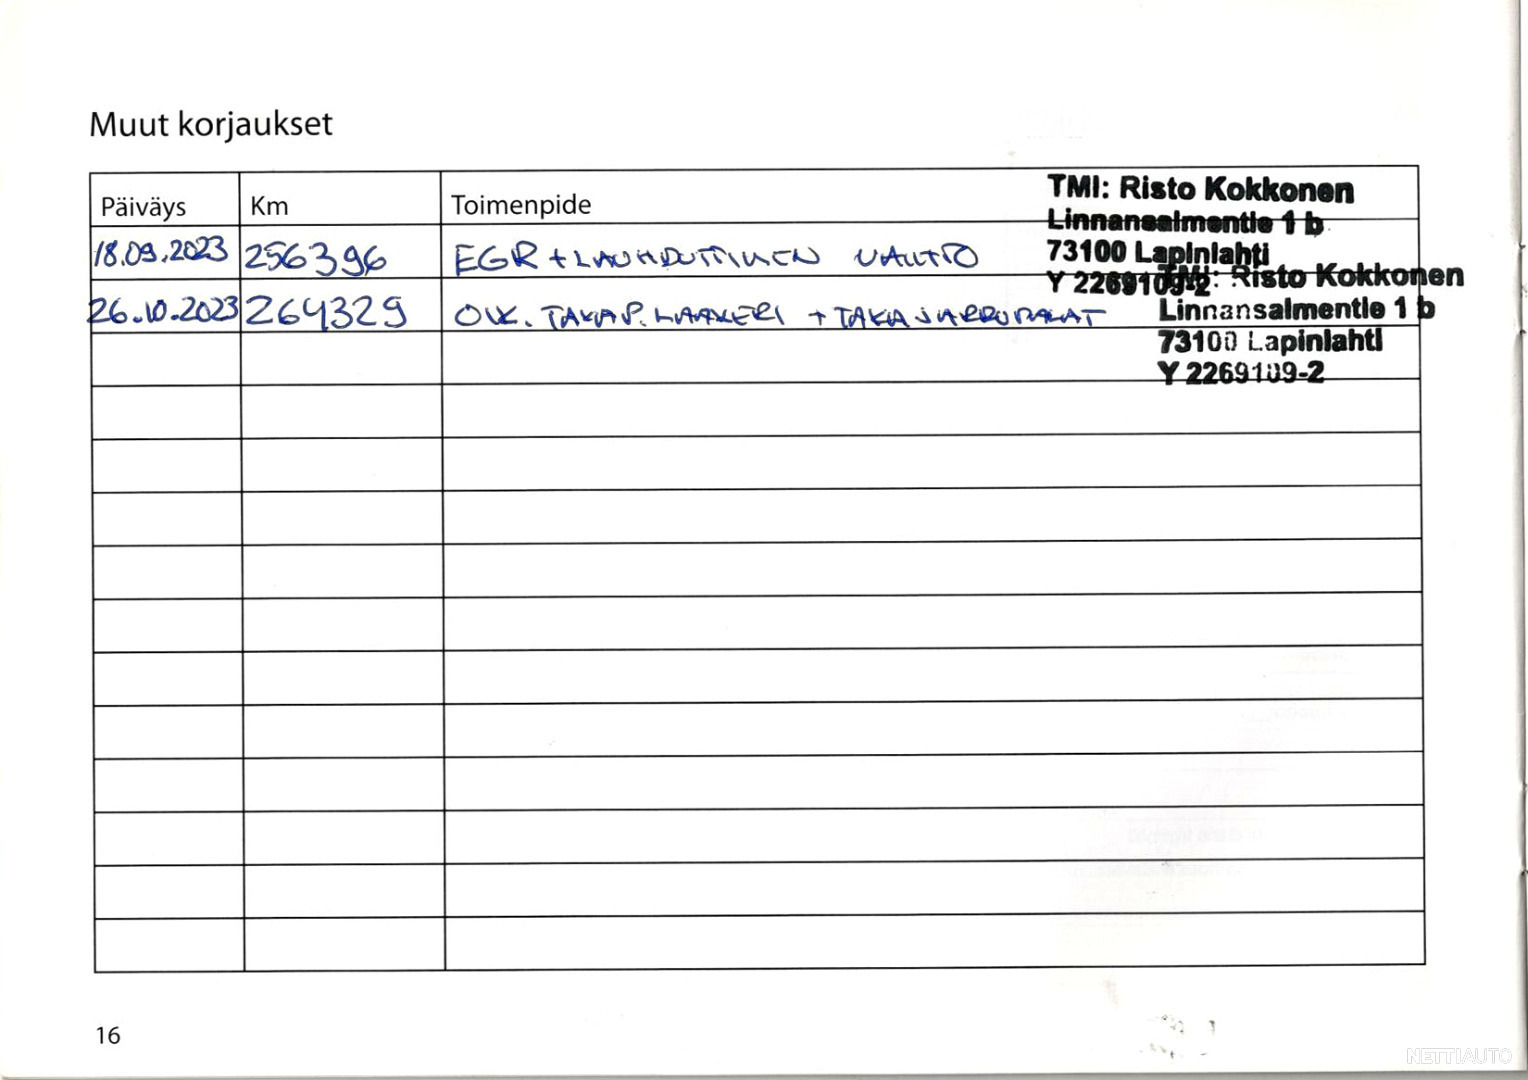 Muut korjaukset
TMI: Risto Kokkonen
Päiväys Km Toimenpide
Linnansalmentie 1 b
18.09.2023 256396 EGR + LAUHDUTTIMEN VAIHTO
73100 Lapinlahti
Y 2269109-2
TMI: Risto Kokkonen
26.10.2023 264329 OIK. TAKA P. LAAKERI + TAKAJARRUPALAT
Linnansalmentie 1 b
73100 Lapinlahti
Y 2269109-2
16
NETTIAUTO